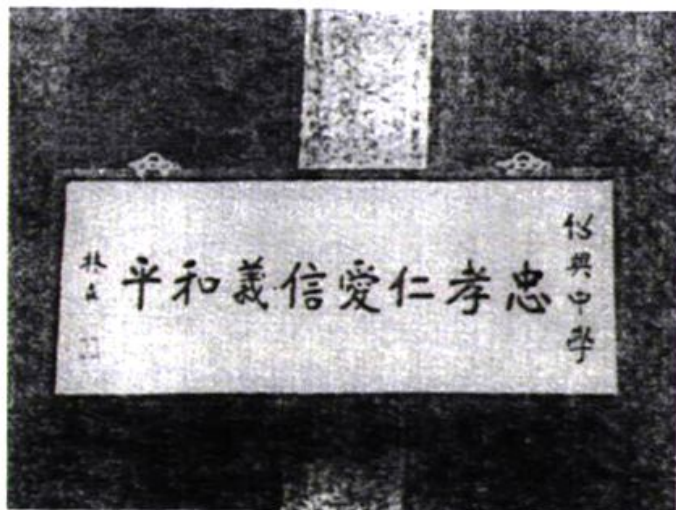 興中學
忠孝仁愛信義和平
林森